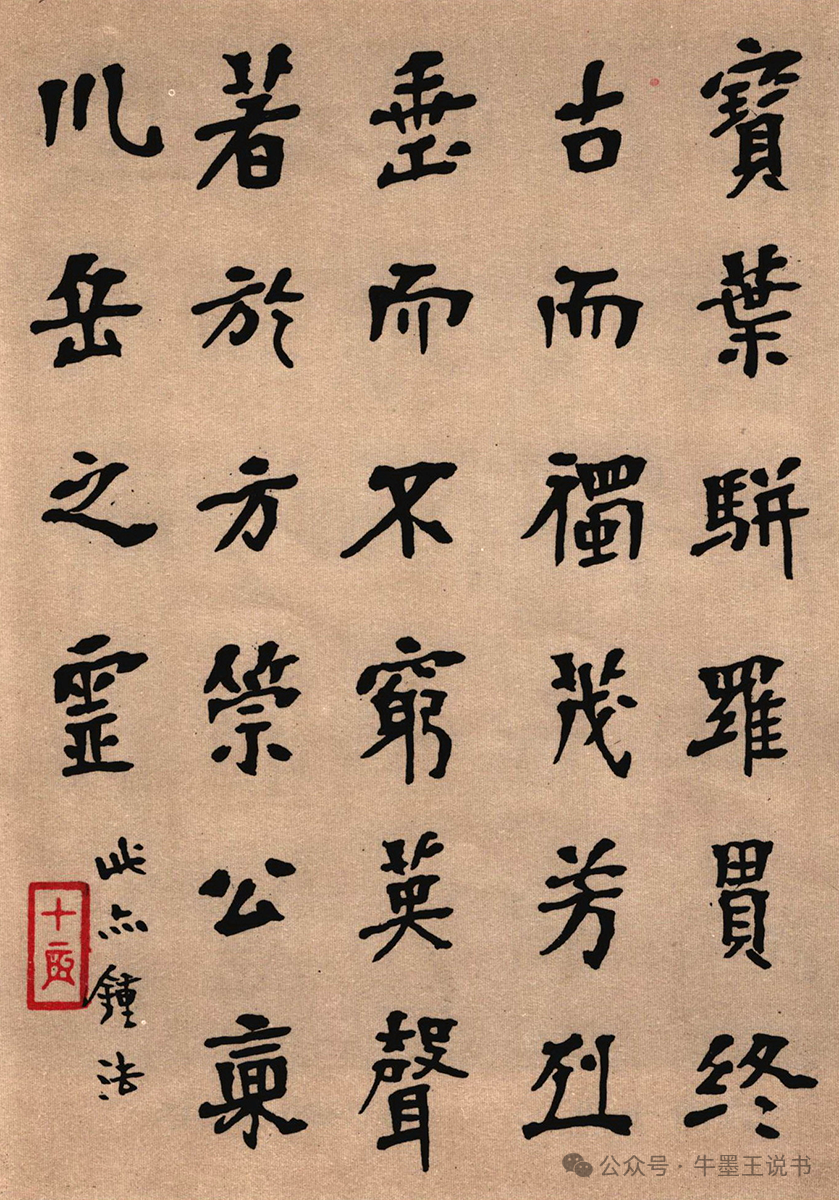 寶葉駢羅貫終
古而獨茂芳烈
垂而不窮英聲
著於方策公稟
川岳之靈
此亦鍾法
公众号·牛墨王说书